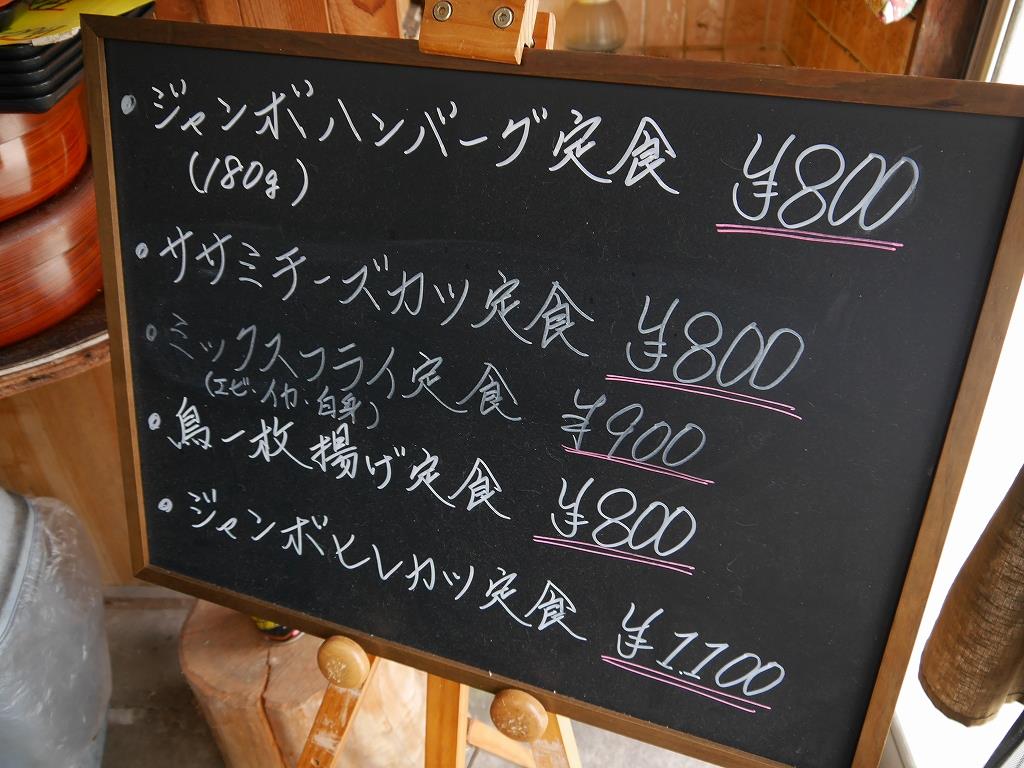 ・ジャンボハンバーグ定食 ¥800
(180g)
・ササミチーズカツ定食 ¥800
・ミックスフライ定食 ¥900
(エビ・イカ・白身)
・鳥一枚揚げ定食 ¥800
・ジャンボヒレカツ定食 ¥1.100